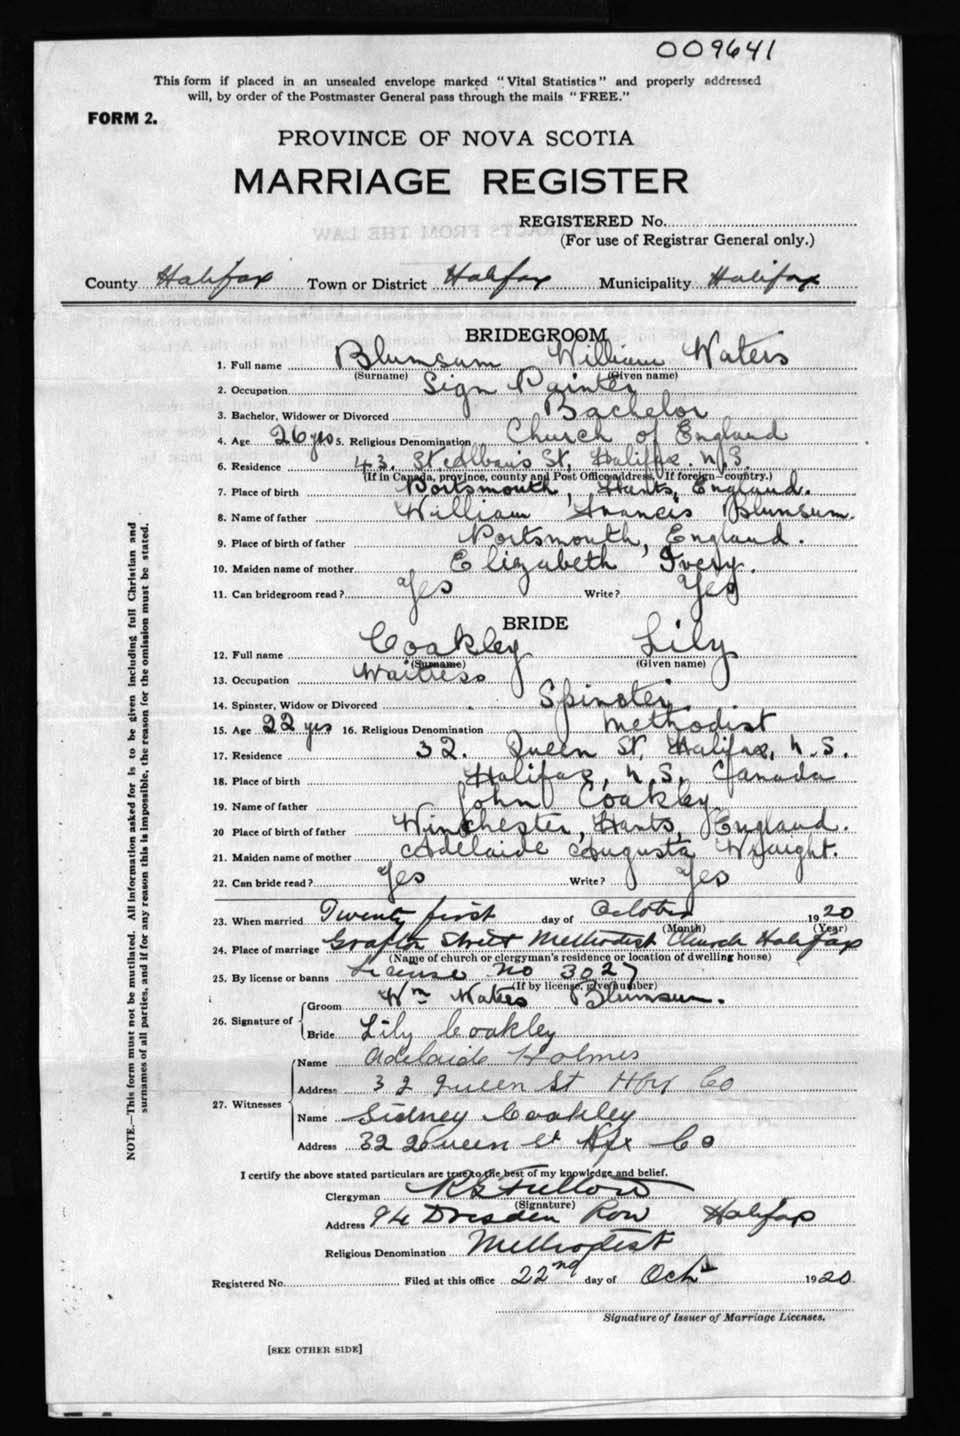 009641
This form if placed in an unsealed envelope marked "Vital Statistics" and properly addressed
will, by order of the Postmaster General pass through the mails "FREE."
FORM 2.
PROVINCE OF NOVA SCOTIA
MARRIAGE REGISTER
REGISTERED No.
(For use of Registrar General only.)
County Halifax Town or District Halifax Municipality Halifax
BRIDEGROOM
1. Full name Blumsum William Waters
(Surname) (Given name)
2. Occupation Sign Painter
3. Bachelor, Widower or Divorced Bachelor
4. Age 26 yrs 5. Religious Denomination Church of England
6. Residence 43. St. Alban's St, Halifax. N.S.
(If in Canada, province, county and Post Office address, If foreign—country.)
7. Place of birth Portsmouth, Hants, England.
8. Name of father William Francis Blumsum.
9. Place of birth of father Portsmouth, England.
10. Maiden name of mother Elizabeth Ivery.
11. Can bridegroom read? Yes Write? Yes
BRIDE
12. Full name Coakley Lily
(Surname) (Given name)
13. Occupation Waitress
14. Spinster, Widow or Divorced Spinster.
15. Age 22 yrs 16. Religious Denomination Methodist
17. Residence 32. Queen St, Halifax, N.S.
18. Place of birth Halifax, N.S, Canada
19. Name of father John Coakley
20 Place of birth of father Winchester, Hants, England.
21. Maiden name of mother Adelaide Augusta Wraight.
22. Can bride read? Yes Write? Yes
23. When married Twenty first day of October 1920
(Month) (Year)
24. Place of marriage Grafton Street Methodist Church Halifax
(Name of church or clergyman's residence or location of dwelling house)
25. By license or banns License No 3027
(If by license, give number)
26. Signature of Groom Wm Waters Blumsum.
Bride Lily Coakley
27. Witnesses Name Adelaide Holmes
Address 32 Queen St Hfx Co
Name Sidney Coakley
Address 32 Queen St Hfx Co
I certify the above stated particulars are true to the best of my knowledge and belief.
Clergyman Fulton
(Signature)
Address 94 Dresden Row Halifax
Religious Denomination Methodist
Registered No. Filed at this office 22nd day of Oct 1920
Signature of Issuer of Marriage Licenses.
[SEE OTHER SIDE]
NOTE.—This form must not be mutilated. All information asked for is to be given including full Christian and
surnames of all parties, and if for any reason this is impossible, the reason for the omission must be stated.